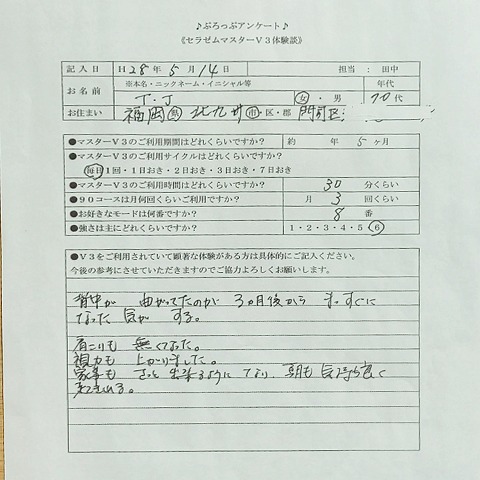 ♪ぷろっぷアンケート♪
《セラゼムマスターV3体験談》
記入日 H28年5月14日 担当： 田中
お名前 ※本名・ニックネーム・イニシャル等 年代
T.J 女・男 70代
お住まい 福岡県 北九州市・区・郡 門司区
●マスターV3のご利用期間はどれくらいですか？ 約 年 5ヶ月
●マスターV3のご利用サイクルはどれくらいですか？
毎日1回・1日おき・2日おき・3日おき・7日おき
●マスターV3のご利用時間はどれくらいですか？ 30分くらい
●90コースは月何回くらいご利用ですか？ 月3回くらい
●お好きなモードは何番ですか？ 8番
●強さは主にどれくらいですか？ 1・2・3・4・5・6
●V3をご利用されていて顕著な体験がある方は具体的にご記入ください。
今後の参考にさせていただきますのでご協力よろしくお願いします。
背中が 曲がってたのが 3ヵ月後から まっすぐに
なった 気が する。
肩こりも 無くなった。
視力も 上がりました。
家事も さっと 出来るように なり、朝も 気持ち良く
起きれる。